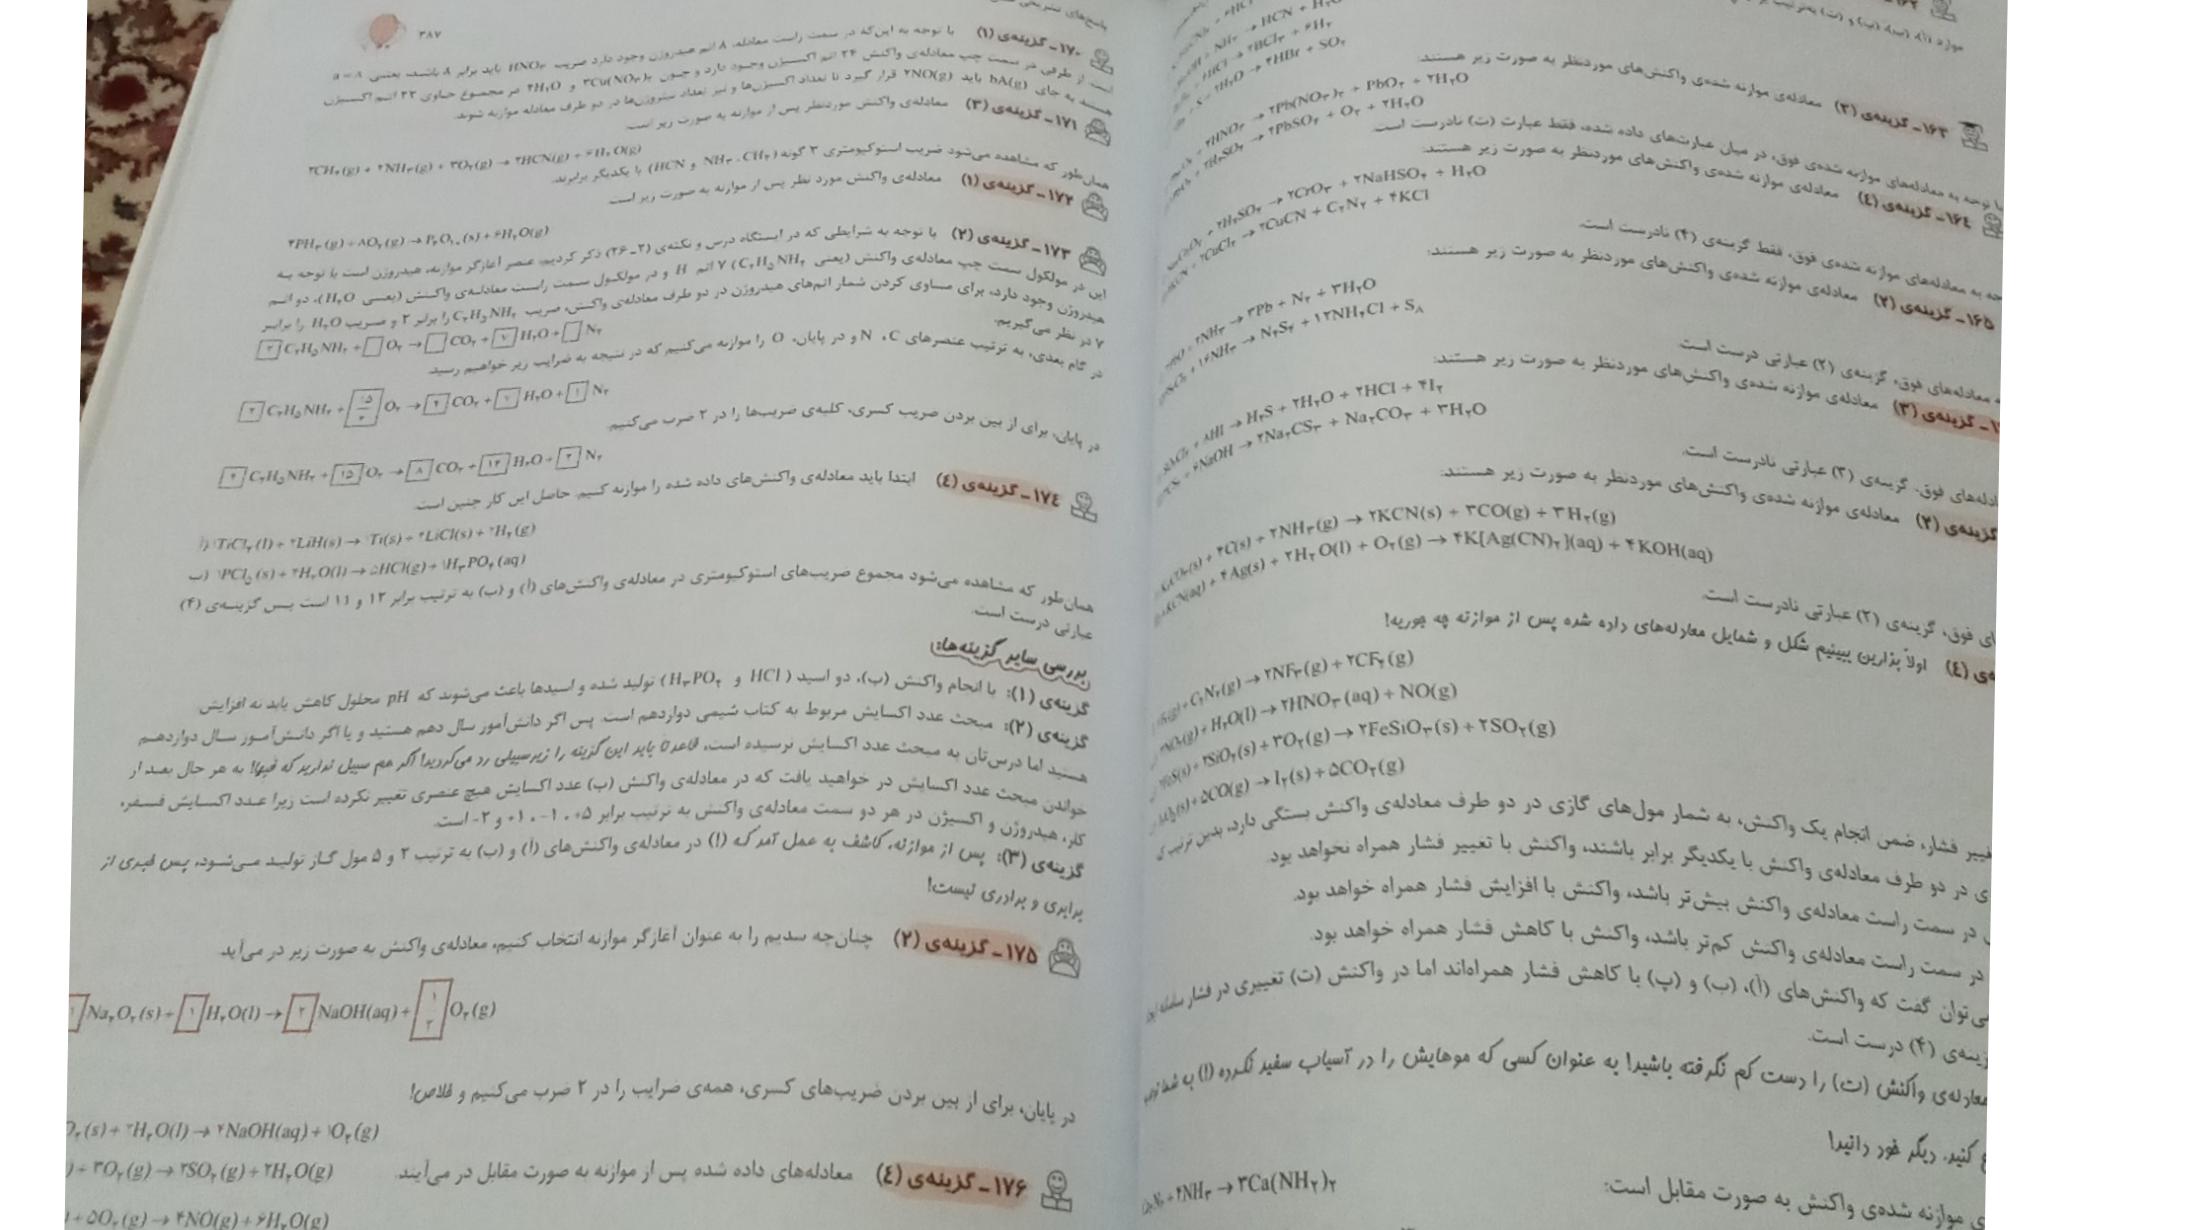 ۳۸۷
۱۷۰ـ گزینه‌ی (۱) با توجه به این‌که در سمت راست معادله، ۸ اتم هیدروژن وجود دارد ضریب HNO۳ باید برابر ۸ باشد، یعنی a = ۸
است. از طرفی در سمت چپ معادله‌ی واکنش ۲۴ اتم اکسیژن وجود دارد و چون ۳Cu(NO۳)۲ و ۴H۲O در مجموع حاوی ۲۲ اتم اکسیژن
هستند به جای bA(g) باید ۲NO(g) قرار گیرد تا تعداد اکسیژن‌ها و نیز تعداد نیتروژن‌ها در دو طرف معادله موازنه شوند.
۱۷۱ـ گزینه‌ی (۳) معادله‌ی واکنش موردنظر پس از موازنه به صورت زیر است:
۲CH۴(g) + ۲NH۳(g) + ۳O۲(g) → ۲HCN(g) + ۶H۲O(g)
همان‌طور که مشاهده می‌شود ضریب استوکیومتری ۳ گونه (CH۴، NH۳ و HCN) با یکدیگر برابرند.
۱۷۲ـ گزینه‌ی (۱) معادله‌ی واکنش مورد نظر پس از موازنه به صورت زیر است
۴PH۳(g) + ۸O۲(g) → P۴O۱۰(s) + ۶H۲O(g)
۱۷۳ـ گزینه‌ی (۲) با توجه به شرایطی که در ایستگاه درس و نکته‌ی (۲ـ۲۶) ذکر کردیم، عنصر آغازگر موازنه، هیدروژن است با توجه به
این در مولکول سمت چپ معادله‌ی واکنش (یعنی C۲H۵NH۲) ۷ اتم H و در مولکول سمت راست معادله‌ی واکنش (یعنی H۲O)، دو اتم
هیدروژن وجود دارد، برای مساوی کردن شمار اتم‌های هیدروژن در دو طرف معادله‌ی واکنش، ضریب C۲H۵NH۲ را برابر ۲ و ضریب H۲O را برابر
۷ در نظر می‌گیریم.
۲ C۲H۵NH۲ + □ O۲ → □ CO۲ + ۷ H۲O + □ N۲
در گام بعدی، به ترتیب عنصرهای C، N و در پایان، O را موازنه می‌کنیم که در نتیجه به ضرایب زیر خواهیم رسید.
۲ C۲H۵NH۲ + ۱۵/۲ O۲ → ۴ CO۲ + ۷ H۲O + ۱ N۲
در پایان، برای از بین بردن ضریب کسری، کلیه‌ی ضریب‌ها را در ۲ ضرب می‌کنیم.
۴ C۲H۵NH۲ + ۱۵ O۲ → ۸ CO۲ + ۱۴ H۲O + ۲ N۲
۱۷٤ـ گزینه‌ی (٤) ابتدا باید معادله‌ی واکنش‌های داده شده را موازنه کنیم. حاصل این کار چنین است.
آ) ۱TiCl۴(l) + ۴LiH(s) → ۱Ti(s) + ۴LiCl(s) + ۲H۲(g)
ب) ۱PCl۵(s) + ۴H۲O(l) → ۵HCl(g) + ۱H۳PO۴(aq)
همان‌طور که مشاهده می‌شود مجموع ضریب‌های استوکیومتری در معادله‌ی واکنش‌های (آ) و (ب) به ترتیب برابر ۱۲ و ۱۱ است پس گزینه‌ی (۴)
عبارتی درست است.
بررسی سایر گزینه‌ها:
گزینه‌ی (۱): با انجام واکنش (ب)، دو اسید (HCl و H۳PO۴) تولید شده و اسیدها باعث می‌شوند که pH محلول کاهش یابد نه افزایش.
گزینه‌ی (۲): مبحث عدد اکسایش مربوط به کتاب شیمی دوازدهم است. پس اگر دانش‌آموز سال دهم هستید و یا اگر دانش‌آموز سال دوازدهم
هستید اما درس‌تان به مبحث عدد اکسایش نرسیده است، قاعدتاً باید این گزینه را زیرسبیلی رد می‌کردید! اگر هم سبیل ندارید که فبها! به هر حال بعد از
خواندن مبحث عدد اکسایش در خواهید یافت که در معادله‌ی واکنش (ب) عدد اکسایش هیچ عنصری تغییر نکرده است زیرا عدد اکسایش فسفر،
کلر، هیدروژن و اکسیژن در هر دو سمت معادله‌ی واکنش به ترتیب برابر ۵+، ۱-، ۱+ و ۲- است.
گزینه‌ی (۳): پس از موازنه، کاشف به عمل آمد که (!) در معادله‌ی واکنش‌های (آ) و (ب) به ترتیب ۲ و ۵ مول گاز تولید می‌شود، پس خبری از
برابری و برادری نیست!
۱۷۵ـ گزینه‌ی (۲) چنان‌چه سدیم را به عنوان آغازگر موازنه انتخاب کنیم، معادله‌ی واکنش به صورت زیر در می‌آید.
۱ Na۲O۲(s) + ۱ H۲O(l) → ۲ NaOH(aq) + ۱/۲ O۲(g)
در پایان، برای از بین بردن ضریب‌های کسری، همه‌ی ضرایب را در ۲ ضرب می‌کنیم و خلاص!
O۲(s) + ۲H۲O(l) → ۴NaOH(aq) + ۱O۲(g)
۱۷۶ـ گزینه‌ی (٤) معادله‌های داده شده پس از موازنه به صورت مقابل در می‌آیند.
) + ۳O۲(g) → ۲SO۲(g) + ۲H۲O(g)
) + ۵O۲(g) → ۴NO(g) + ۶H۲O(g)
۱۶۳ـ گزینه‌ی (۳) معادله‌ی موازنه شده‌ی واکنش‌های موردنظر به صورت زیر هستند:
۴HNO۳ → ۲Pb(NO۳)۲ + PbO۲ + ۲H۲O
۲H۲SO۴ → ۲PbSO۴ + O۲ + ۲H۲O
با توجه به معادله‌های موازنه شده‌ی فوق، در میان عبارت‌های داده شده، فقط عبارت (ت) نادرست است.
۱۶٤ـ گزینه‌ی (٤) معادله‌ی موازنه شده‌ی واکنش‌های موردنظر به صورت زیر هستند:
+ ۲H۲SO۴ → ۲CrO۳ + ۲NaHSO۴ + H۲O
+ ۲CuCl۲ → ۲CuCN + C۲N۲ + ۴KCl
جه به معادله‌های موازنه شده‌ی فوق، فقط گزینه‌ی (۴) نادرست است.
۱۶۵ـ گزینه‌ی (۲) معادله‌ی موازنه شده‌ی واکنش‌های موردنظر به صورت زیر هستند:
+ ۲NH۳ → ۳Pb + N۲ + ۳H۲O
+ ۱۶NH۳ → N۴S۴ + ۱۲NH۴Cl + S۸
معادله‌های فوق، گزینه‌ی (۲) عبارتی درست است.
گزینه‌ی (۳) معادله‌ی موازنه شده‌ی واکنش‌های موردنظر به صورت زیر هستند:
+ ۸HI → H۲S + ۲H۲O + ۲HCl + ۴I۲
+ ۶NaOH → ۲Na۲CS۳ + Na۲CO۳ + ۳H۲O
ادله‌های فوق، گزینه‌ی (۳) عبارتی نادرست است.
گزینه‌ی (۲) معادله‌ی موازنه شده‌ی واکنش‌های موردنظر به صورت زیر هستند:
K۲CO۳(s) + ۴C(s) + ۲NH۳(g) → ۲KCN(s) + ۳CO(g) + ۳H۲(g)
۸KCN(aq) + ۴Ag(s) + ۲H۲O(l) + O۲(g) → ۴K[Ag(CN)۲](aq) + ۴KOH(aq)
ای فوق، گزینه‌ی (۲) عبارتی نادرست است.
ه‌ی (٤) اولاً بذارین ببینیم شکل و شمایل معادله‌های داده شده پس از موازنه چه جوریه!
(g) + C۲N۲(g) → ۲NF۳(g) + ۲CF۴(g)
۳NO۲(g) + H۲O(l) → ۲HNO۳(aq) + NO(g)
۲FeS(s) + ۲SiO۲(s) + ۳O۲(g) → ۲FeSiO۳(s) + ۲SO۲(g)
(s) + ۵CO(g) → I۲(s) + ۵CO۲(g)
غییر فشار، ضمن انجام یک واکنش، به شمار مول‌های گازی در دو طرف معادله‌ی واکنش بستگی دارد، بدین ترتیب که
ی در دو طرف معادله‌ی واکنش با یکدیگر برابر باشند، واکنش با تغییر فشار همراه نخواهد بود.
در سمت راست معادله‌ی واکنش بیش‌تر باشد، واکنش با افزایش فشار همراه خواهد بود.
در سمت راست معادله‌ی واکنش کم‌تر باشد، واکنش با کاهش فشار همراه خواهد بود.
می‌توان گفت که واکنش‌های (آ)، (ب) و (پ) با کاهش فشار همراه‌اند اما در واکنش (ت) تغییری در فشار سامانه
زینه‌ی (۴) درست است.
معادله‌ی واکنش (ت) را دست کم نگرفته باشید! به عنوان کسی که موهایش را در آسیاب سفید نکرده (!) به شما
کنید. دیگر خود دانید!
ی موازنه شده‌ی واکنش به صورت مقابل است:
+ ۴NH۳ → ۳Ca(NH۲)۲